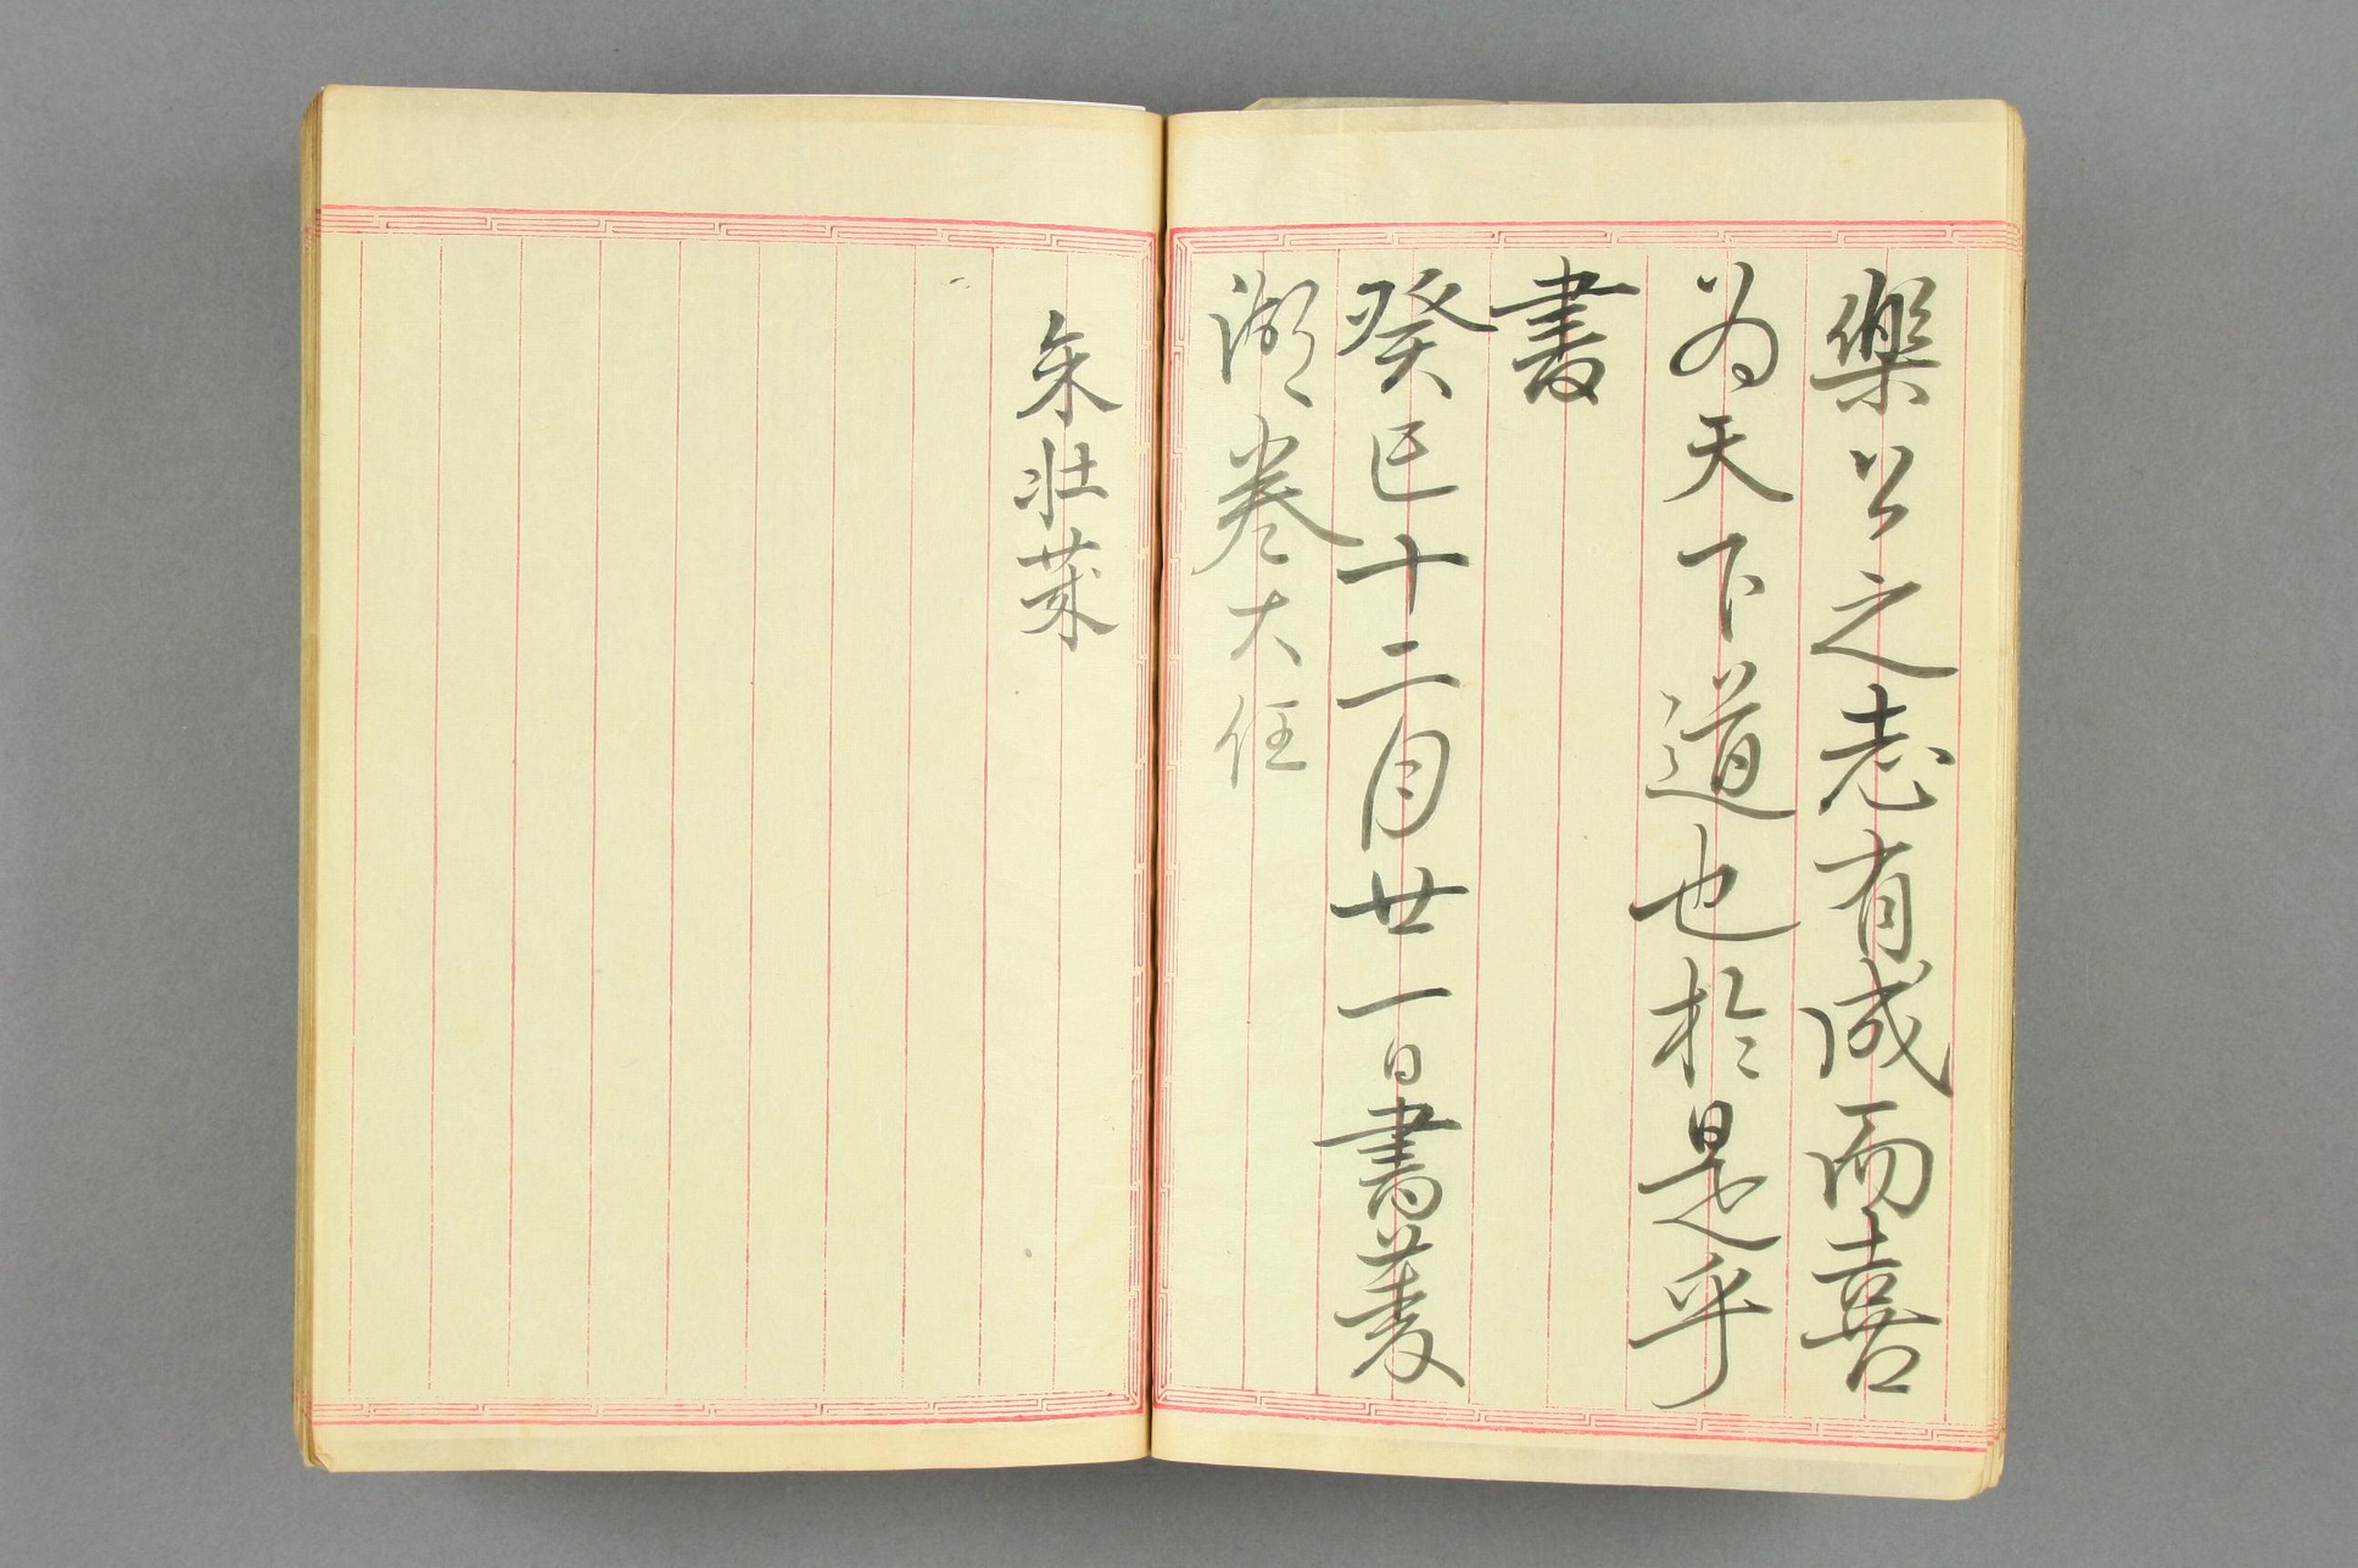 樂公之志有成而喜
為天下道也於是乎
書
癸巳十二月廿一日書菱
湖卷大任
朱壮菜